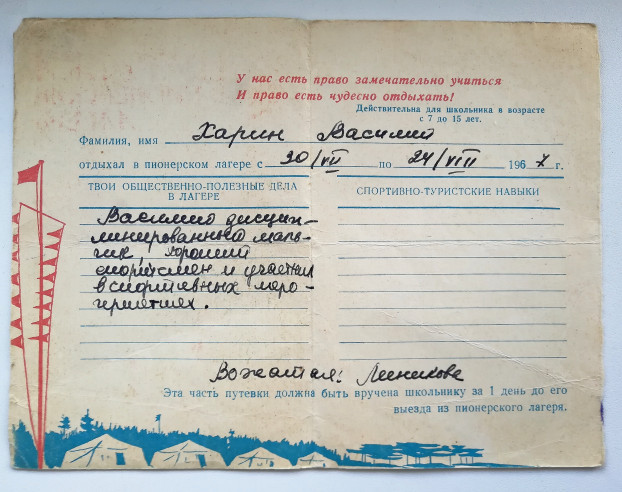 У нас есть право замечательно учиться
И право есть чудесно отдыхать!
Действительна для школьника в возрасте
с 7 до 15 лет.
Фамилия, имя Харин Василий
отдыхал в пионерском лагере с 20/VII по 24/VIII 1967 г.
ТВОИ ОБЩЕСТВЕННО-ПОЛЕЗНЫЕ ДЕЛА
В ЛАГЕРЕ
СПОРТИВНО-ТУРИСТСКИЕ НАВЫКИ
Василий дисцип-
линированный маль-
чик, хороший
спортсмен и участник
в спортивных меро-
приятиях.
Вожатая:
Эта часть путевки должна быть вручена школьнику за 1 день до его
выезда из пионерского лагеря.